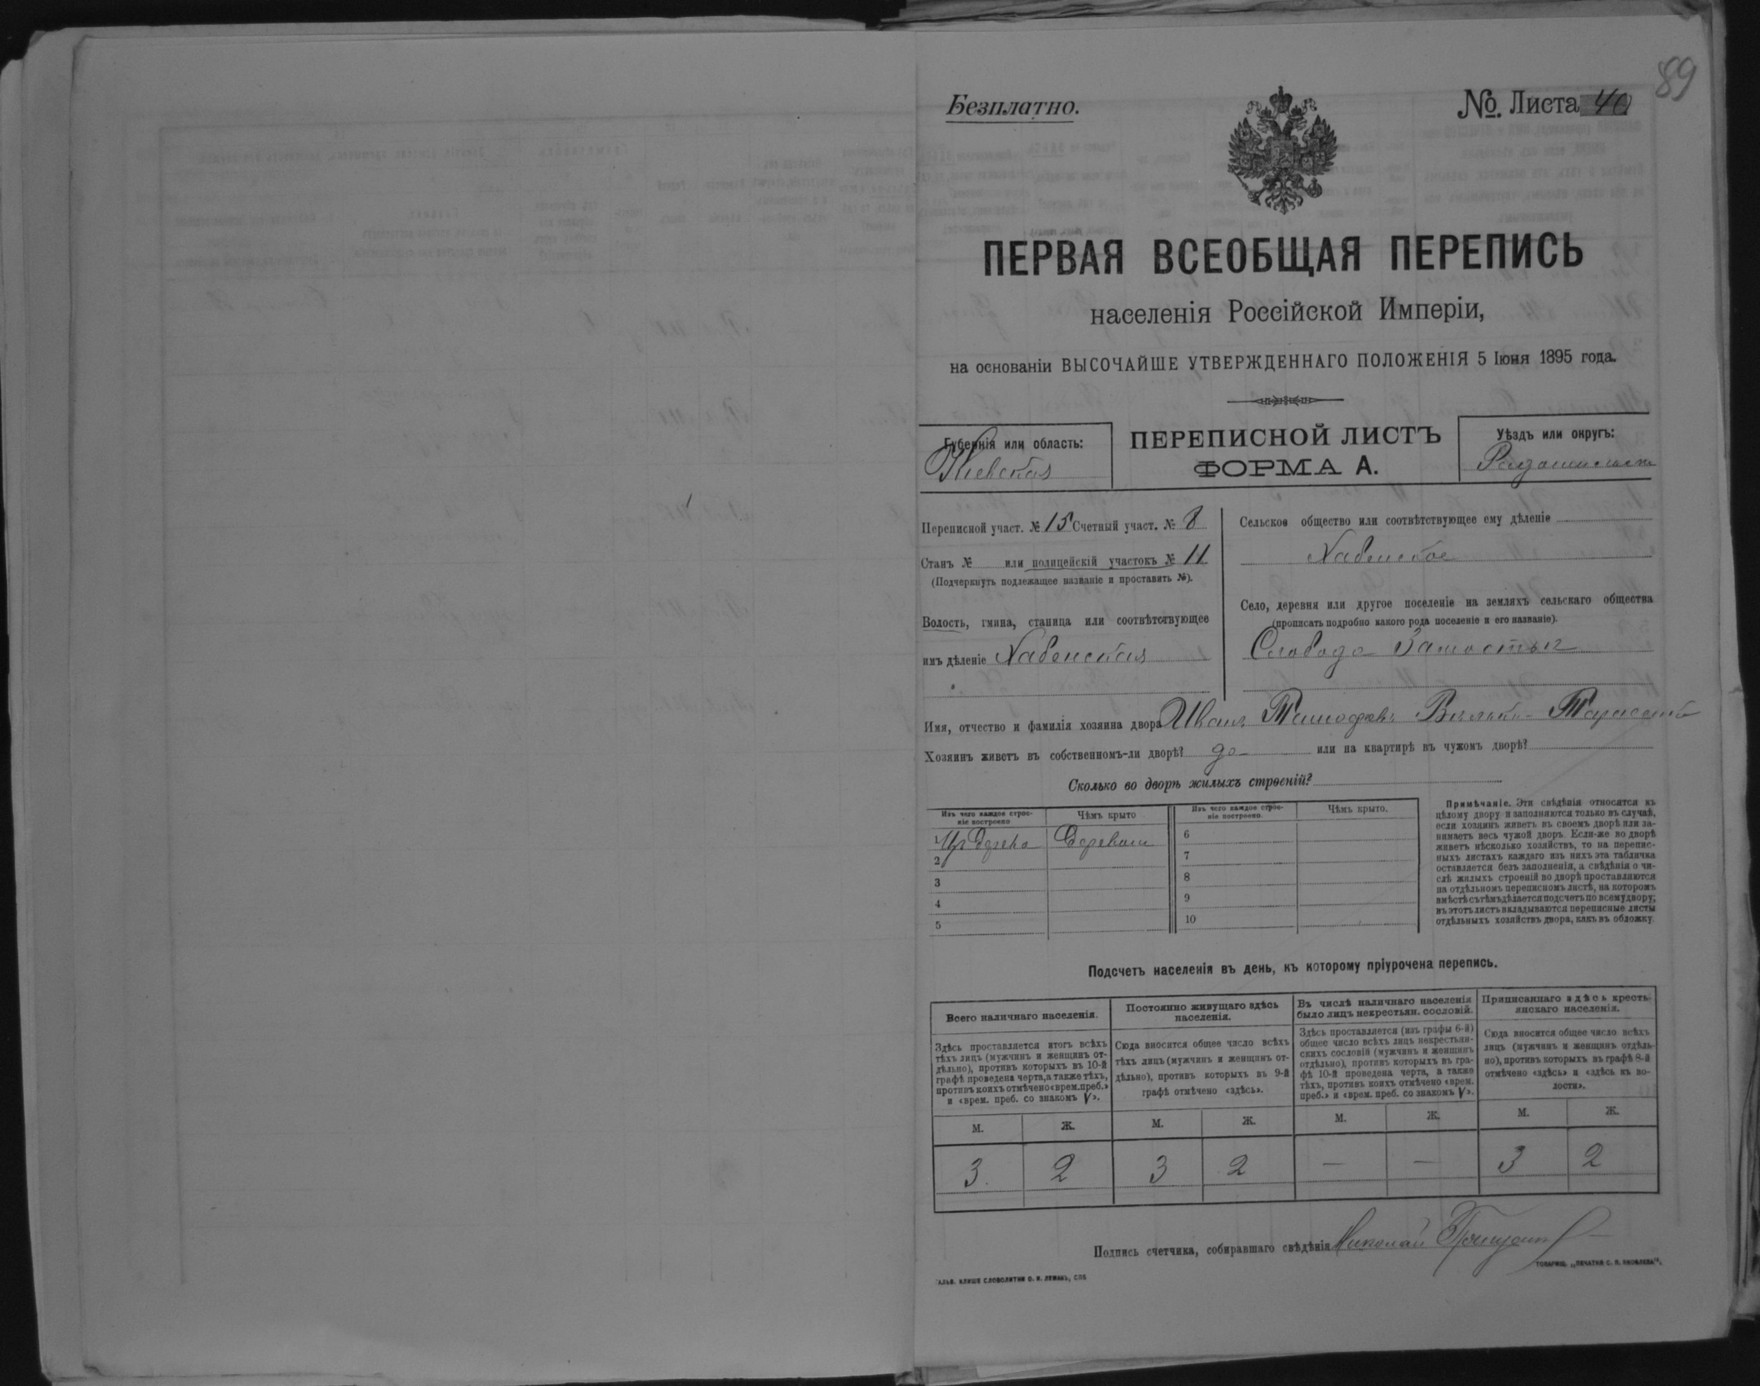 89
Безплатно.
№. Листа 40
ПЕРВАЯ ВСЕОБЩАЯ ПЕРЕПИСЬ
населенія Россійской Имперіи,
на основаніи ВЫСОЧАЙШЕ УТВЕРЖДЕННАГО ПОЛОЖЕНІЯ 5 Іюня 1895 года.
Губернія или область:
Кіевская
ПЕРЕПИСНОЙ ЛИСТЪ
ФОРМА А.
Уѣздъ или округъ:
Переписной участ. № 15 Счетный участ. № 8
Станъ № или полицейскій участокъ № 11
(Подчеркнуть подлежащее названіе и проставить №).
Волость, гмина, станица или соотвѣтствующее
имъ дѣленіе Хабенская
Сельское общество или соотвѣтствующее ему дѣленіе
Хабенское
Село, деревня или другое поселеніе на земляхъ сельскаго общества
(прописать подробно какого рода поселеніе и его названіе).
Слобода Замостье
Имя, отчество и фамилія хозяина двора Иванъ Тимофѣевъ
Хозяинъ живетъ въ собственномъ-ли дворѣ? да или на квартирѣ въ чужомъ дворѣ?
Сколько во дворѣ жилыхъ строеній?
Изъ чего каждое строе-
ніе построено
Чѣмъ крыто
Изъ чего каждое строе-
ніе построено.
Чѣмъ крыто.
1 Изъ дерева Деревомъ
2
3
4
5
6
7
8
9
10
Примѣчаніе. Эти свѣдѣнія относятся къ
цѣлому двору и заполняются только въ случаѣ,
если хозяинъ живетъ въ своемъ дворѣ или за-
нимаетъ весь чужой дворъ. Если-же во дворѣ
живетъ нѣсколько хозяйствъ, то на перепис-
ныхъ листахъ каждаго изъ нихъ эта табличка
оставляется безъ заполненія, а свѣдѣнія о чи-
слѣ жилыхъ строеній во дворѣ проставляются
на отдѣльномъ переписномъ листѣ, на которомъ
вмѣстѣ съ тѣмъ дѣлается подсчетъ по всему двору;
въ этотъ листъ вкладываются переписные листы
отдѣльныхъ хозяйствъ двора, какъ въ обложку.
Подсчетъ населенія въ день, къ которому пріурочена перепись.
Всего наличнаго населенія.
Здѣсь проставляется итогъ всѣхъ
тѣхъ лицъ (мужчинъ и женщинъ от-
дѣльно), противъ которыхъ въ 10-й
графѣ проведена черта, а также тѣхъ,
противъ коихъ отмѣчено «врем. преб.»
и «врем. преб. со знакомъ V».
Постоянно живущаго здѣсь
населенія.
Сюда вносится общее число всѣхъ
тѣхъ лицъ (мужчинъ и женщинъ от-
дѣльно), противъ которыхъ въ 9-й
графѣ отмѣчено «здѣсь».
Въ числѣ наличнаго населенія
было лицъ некрестьян. сословій.
Здѣсь проставляется (изъ графы 6-й)
общее число всѣхъ лицъ некрестьян-
скихъ сословій (мужчинъ и женщинъ
отдѣльно), противъ которыхъ въ гра-
фѣ 10-й проведена черта, а также
тѣхъ, противъ коихъ отмѣчено «врем.
преб.» и «врем. преб. со знакомъ V».
Приписаннаго здѣсь кресть-
янскаго населенія.
Сюда вносится общее число всѣхъ
лицъ (мужчинъ и женщинъ отдѣль-
но), противъ которыхъ въ графѣ 8-й
отмѣчено «здѣсь» и «здѣсь къ во-
лости».
М. Ж. М. Ж. М. Ж. М. Ж.
3 2 3 2 — — 3 2
Подпись счетчика, собиравшаго свѣдѣнія Николай
СЛОВОЛИТНИ О. И. ЛЕМАНЪ, СПБ
ТОВАРИЩ. „ПЕЧАТНЯ С. П. ЯКОВЛЕВА“.